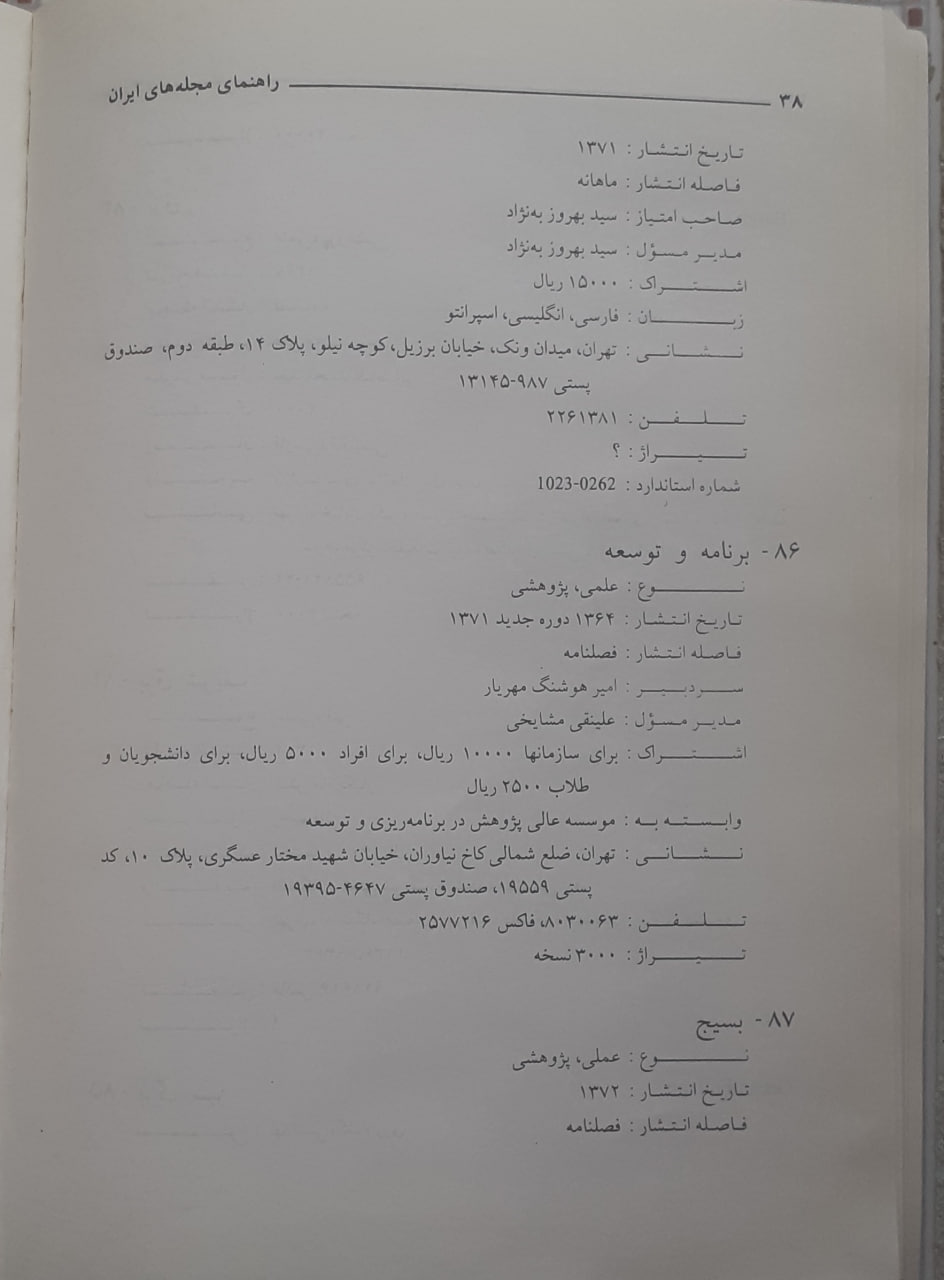 ۳۸ راهنمای مجله‌های ایران
تاریخ انتشار : ۱۳۷۱
فاصله انتشار : ماهانه
صاحب امتیاز : سید بهروز به‌نژاد
مدیر مسؤل : سید بهروز به‌نژاد
اشتراک : ۱۵۰۰۰ ریال
زبان : فارسی، انگلیسی، اسپرانتو
نشانی : تهران، میدان ونک، خیابان برزیل،کوچه نیلو، پلاک ۱۴، طبقه دوم، صندوق
پستی ۹۸۷-۱۳۱۴۵
تلفن : ۲۲۶۱۳۸۱
تیراژ : ؟
شماره استاندارد : 1023-0262
۸۶- برنامه و توسعه
نوع : علمی، پژوهشی
تاریخ انتشار : ۱۳۶۴ دوره جدید ۱۳۷۱
فاصله انتشار : فصلنامه
سردبیر : امیر هوشنگ مهریار
مدیر مسؤل : علینقی مشایخی
اشتراک : برای سازمانها ۱۰۰۰۰ ریال، برای افراد ۵۰۰۰ ریال، برای دانشجویان و
طلاب ۲۵۰۰ ریال
وابسته به : موسسه عالی پژوهش در برنامه‌ریزی و توسعه
نشانی : تهران، ضلع شمالی کاخ نیاوران، خیابان شهید مختار عسگری، پلاک ۱۰، کد
پستی ۱۹۵۵۹، صندوق پستی ۴۶۴۷-۱۹۳۹۵
تلفن : ۸۰۳۰۰۶۳، فاکس ۲۵۷۷۲۱۶
تیراژ : ۳۰۰۰ نسخه
۸۷- بسیج
نوع : عملی، پژوهشی
تاریخ انتشار : ۱۳۷۲
فاصله انتشار : فصلنامه